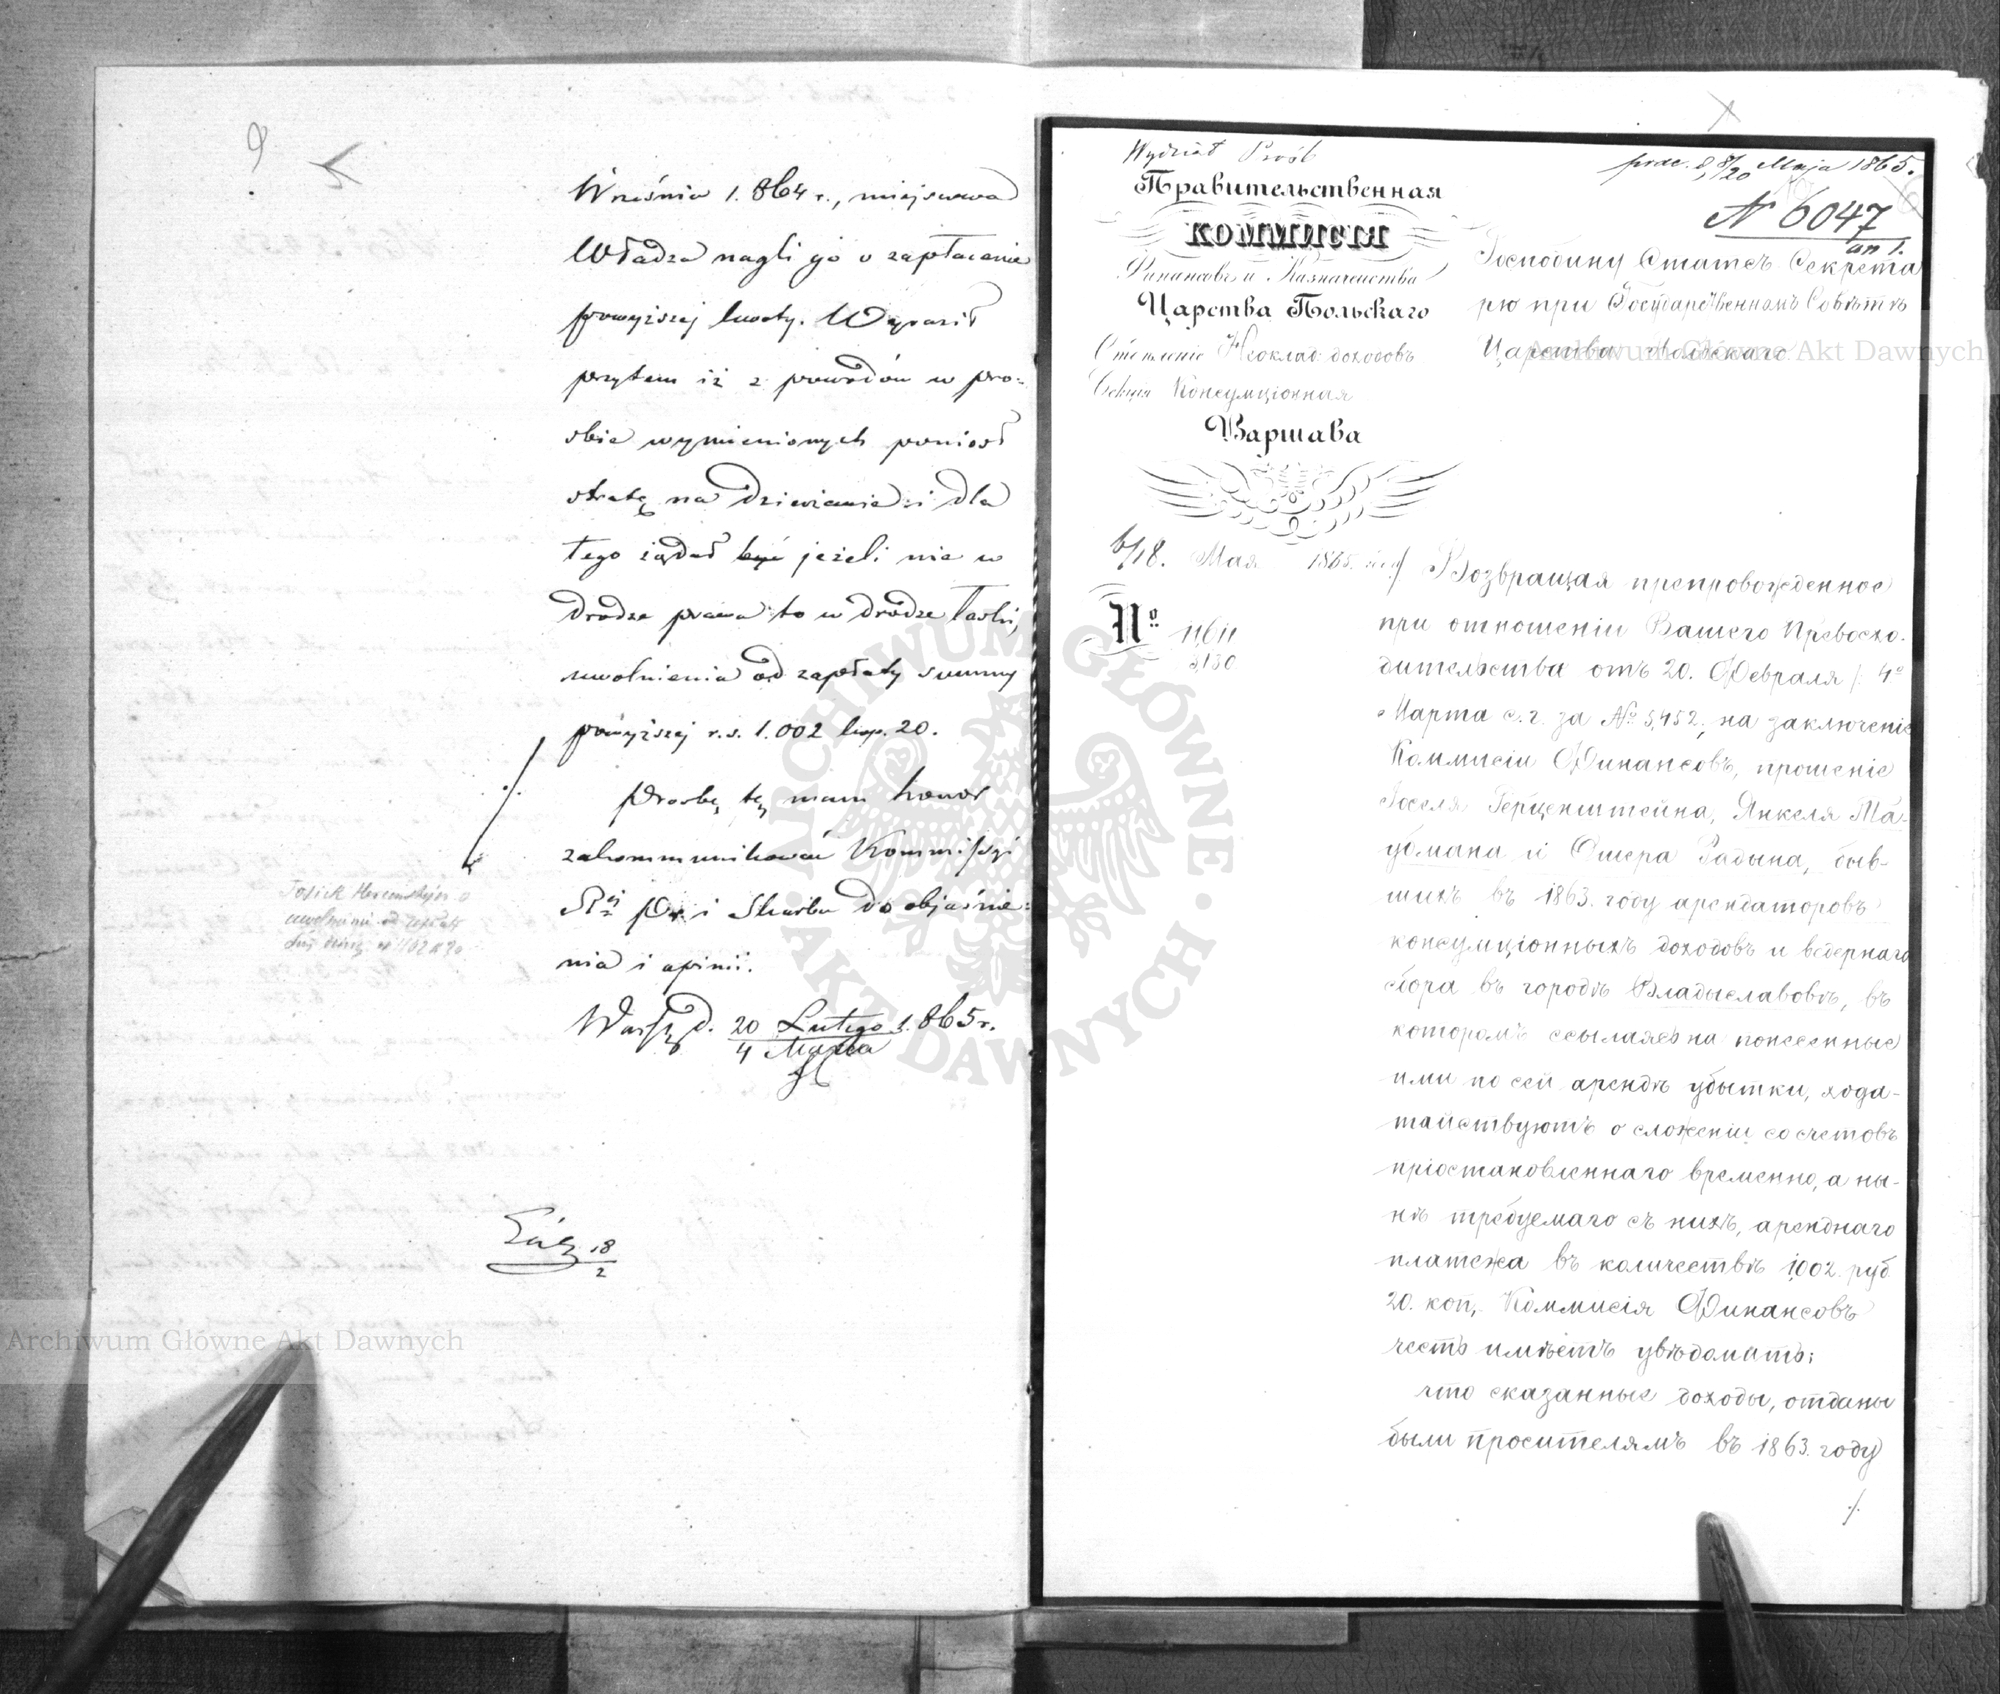 Września 1.864 r., miejscowa
Władza nagli go o zapłacenie
powyższej kwoty. Wyraził
przytem iż z powodów w pro=
śbie wymienionych poniosł
stratę na dzierżawie i dla
tego żądał być jeżeli nie w
drodze prawa to w drodze łaski,
uwolnienia od zapłaty summy
powyższej r.s. 1.002 kop. 20.
Prosbę tę mam honor
zakommunikować Kommissyi
Rz. Pr. i Skarbu do objaśnie=
nia i opinii.
Warsz. d. 20 Lutego 1.865 r.
4 Marca
Josiek Hercensztejn o
uwolnienie od zapłaty
18
2
Archiwum Główne Akt Dawnych
Wydział Prośb
prze. d. 8/20 Maja 1865.
N 6047
an 1.
Правительственная
КОММИСІЯ
Финансовъ и Казначейства
Царства Польскаго
Отдѣленіе Неоклад. доходовъ
Секція Консумціонная
Варшава
6/18. Мая 1865.
№ 11,611
3,130
Господину Статсъ Секрета
рю при Государственномъ Совѣтѣ
Царства Польскаго.
Archiwum Główne Akt Dawnych
Возвращая препровожденное
при отношеніи Вашего Превосхо-
дительства отъ 20. Февраля /: 4º
Марта с. г. за № 5,452, на заключеніе
Коммисіи Финансовъ, прошеніе
Іоселя Герценштейна, Янкеля Ма-
убмана и Ошера Радына, быв-
шихъ въ 1863. году арендаторовъ
консумціонныхъ доходовъ и ведернаго
сбора въ городѣ Владыславовѣ, въ
которомъ ссылаясь на понесенные
ими по сей арендѣ убытки, хода-
тайствуютъ о сложеніи со счетовъ
пріостановленнаго временно, а ны-
нѣ требуемаго съ нихъ, аренднаго
платежа въ количествѣ 1,002. руб.
20. коп., Коммисія Финансовъ
честь имѣетъ увѣдомить:
что сказанные доходы, отданы
были просителямъ въ 1863. году
./.
ARCHIWUM GŁÓWNE · AKT DAWNYCH ·